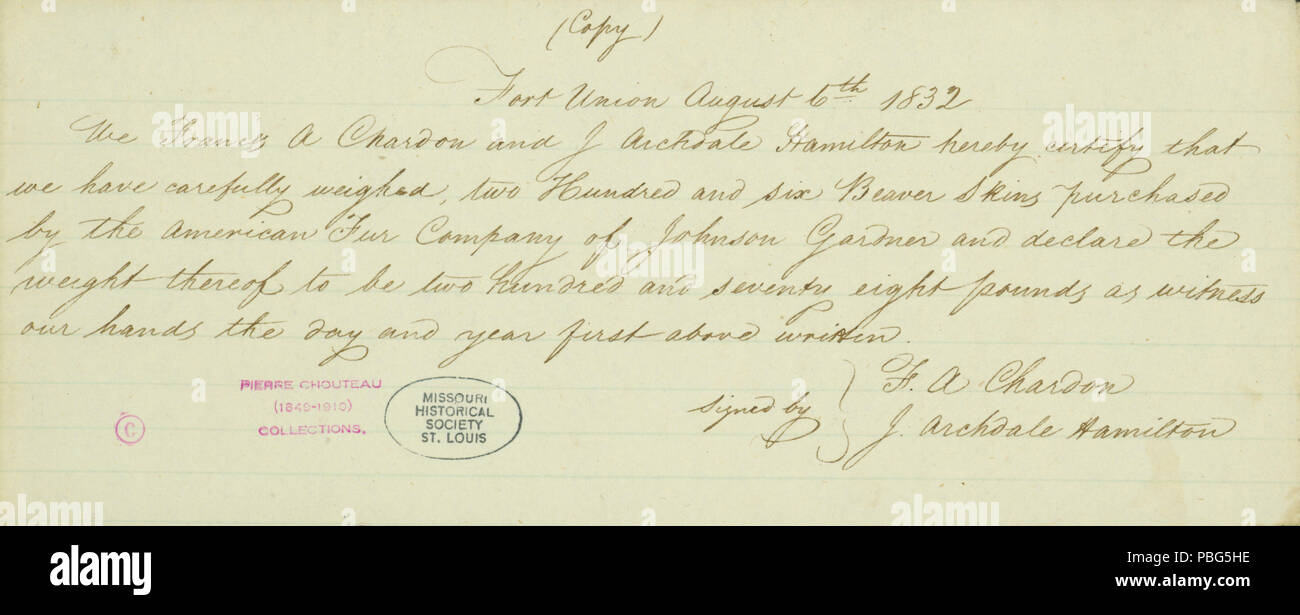 (Copy)
Fort Union August 6th 1832
We Francis A Chardon and J Archdale Hamilton hereby certify that
we have carefully weighed, two Hundred and six Beaver Skins purchased
by the American Fur Company of Johnson Gardner and declare the
weight thereof to be two hundred and seventy eight pounds as witness
our hands the day and year first above written.
signed by
F. A Chardon
J. Archdale Hamilton
PIERRE CHOUTEAU
(1849-1910)
COLLECTIONS.
C
MISSOURI
HISTORICAL
SOCIETY
ST. LOUIS
alamy
Image ID: PBG5HE
www.alamy.com